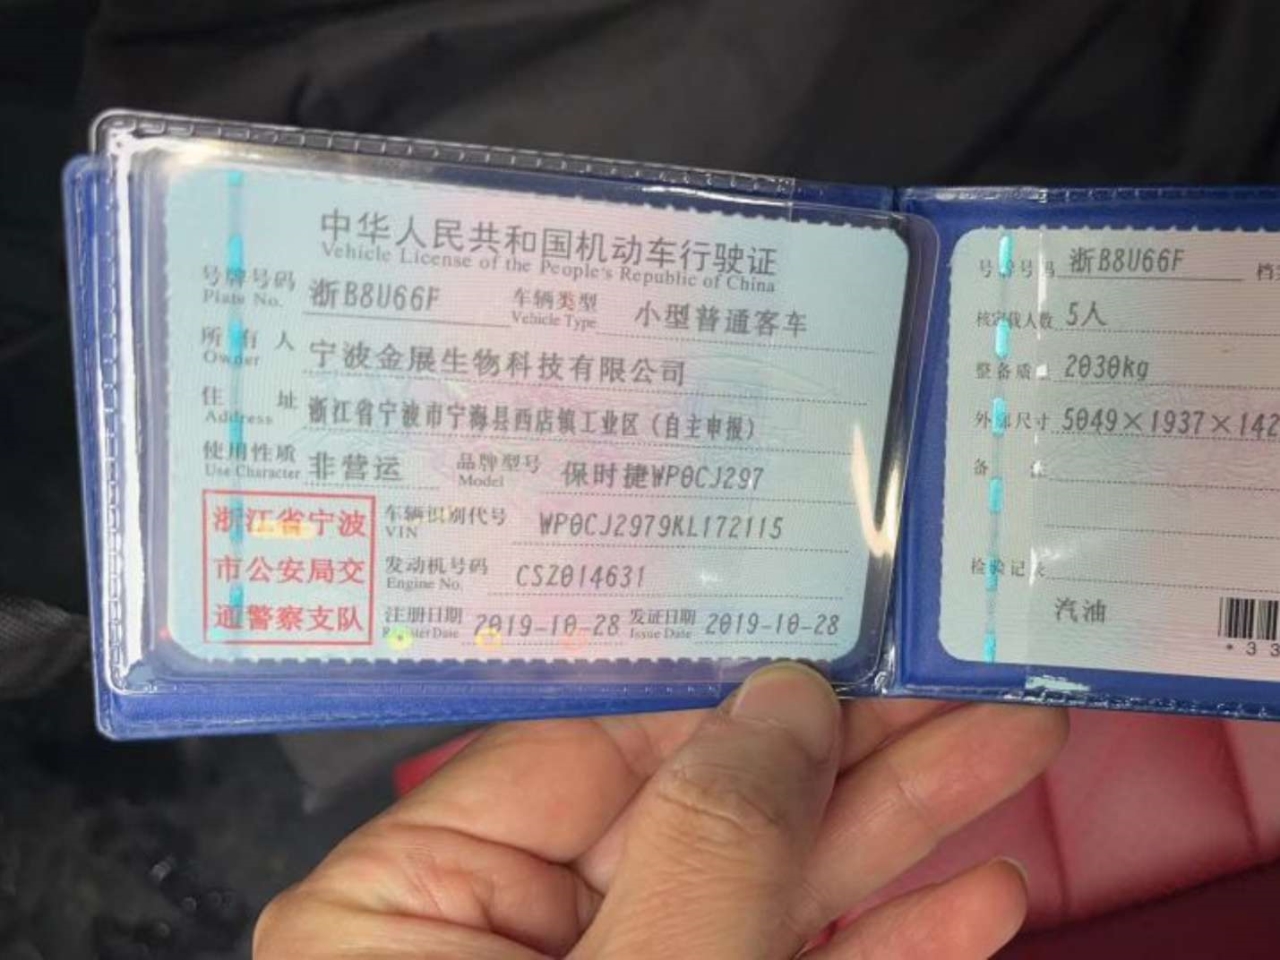 中华人民共和国机动车行驶证
Vehicle License of the People's Republic of China
号牌号码 浙B8U66F 车辆类型 小型普通客车
Plate No. Vehicle Type
所有人 宁波金展生物科技有限公司
Owner
住址 浙江省宁波市宁海县西店镇工业区（自主申报）
Address
使用性质 非营运 品牌型号 保时捷WP0CJ297
Use Character Model
浙江省宁波
市公安局交
通警察支队
车辆识别代号 WP0CJ2979KL172115
VIN
发动机号码 CSZ014631
Engine No.
注册日期 2019-10-28 发证日期 2019-10-28
Register Date Issue Date
号牌号码 浙B8U66F 档
核定载人数 5人
整备质量 2030kg
外廓尺寸 5049×1937×142
备注
检验记录
汽油
*33